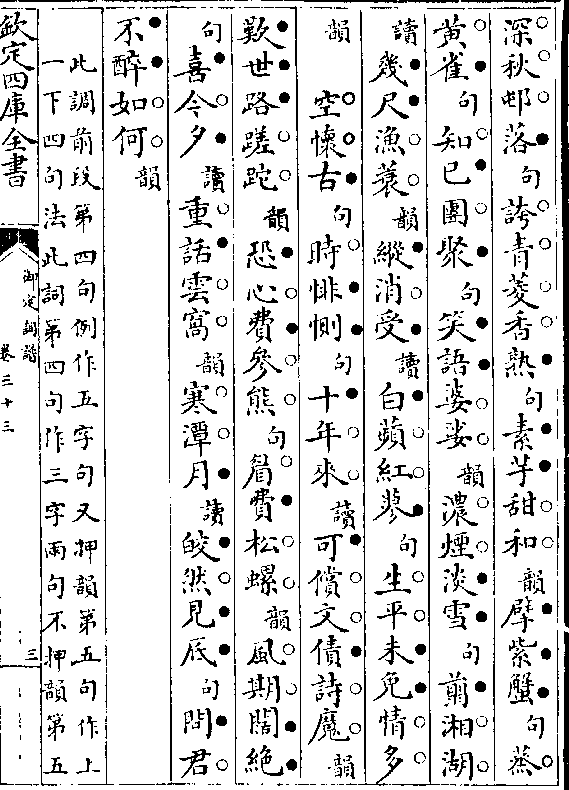 深秋邨落句誇青菱香熟句素芋甜和韻擘紫蟹句蒸
黄雀句知已團聚句笑語婆娑韻濃煙淡雪句翦湘湖
讀幾尺漁蓑韻縱消受讀白蘋紅蓼句生平未免情多
韻　空懷古句時悱惻句十年來讀可償文債詩魔韻
歎世路蹉跎韻恐心費參熊句眉費松螺韻風期闊絶
句喜今夕讀重話雲窩韻寒潭月讀皎然見底句問君
不醉如何韻
此調前段第四句例作五字句又押韻第五句作上
一下四句法此詞第四句作三字兩句不押韻第五
欽定四庫全書
御定詞譜
卷三十三
三